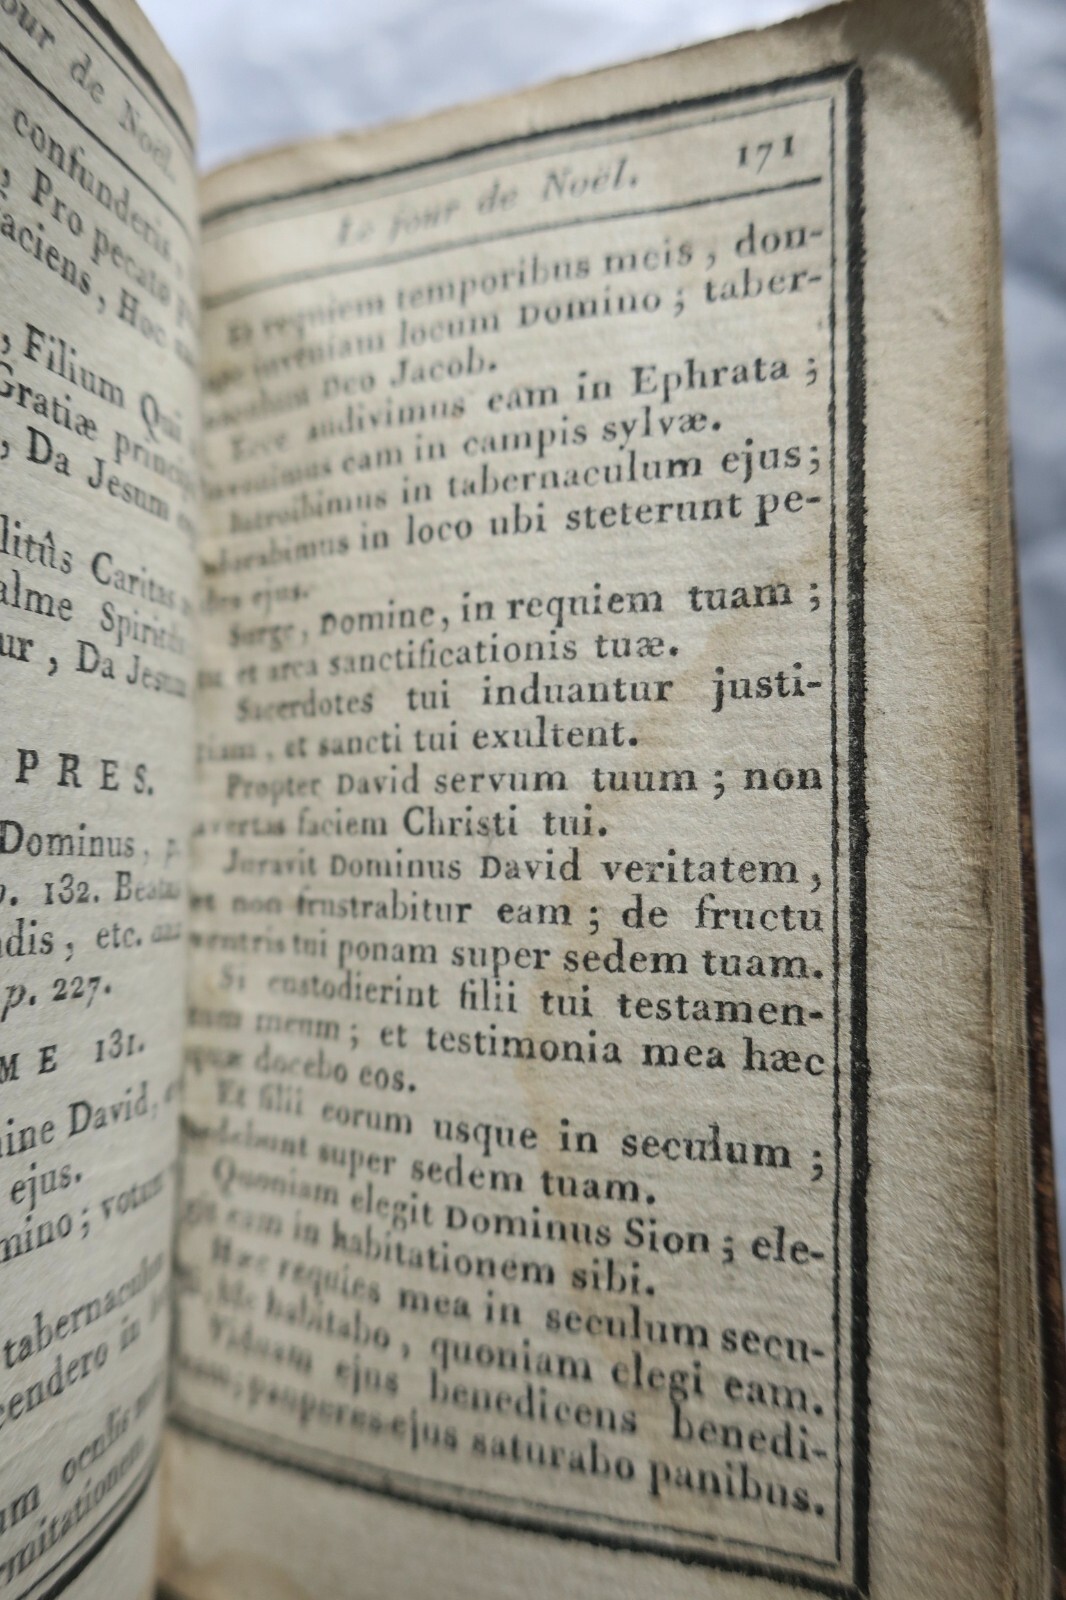 our de Noël.
confunderis,
, Pro pecato
aciens, Hoc
, Filium Qui
Gratiæ princip
, Da Jesum
litûs Caritas
alme Spiritu
ur, Da Jesum
PRES.
Dominus, p.
p. 132. Beatus
dis, etc.
p. 227.
ME 131.
ine David,
ejus.
mino; votum
tabernaculum
cendero in
um oculis
rmitationem
Le jour de Noël. 171
Et requiem temporibus meis, don-
inveniam locum Domino; taber-
Deo Jacob.
Ecce audivimus eam in Ephrata;
invenimus eam in campis sylvæ.
Introibimus in tabernaculum ejus;
adorabimus in loco ubi steterunt pe-
ejus.
Surge, Domine, in requiem tuam;
et arca sanctificationis tuæ.
Sacerdotes tui induantur justi-
tiam, et sancti tui exultent.
Propter David servum tuum; non
avertas faciem Christi tui.
Juravit Dominus David veritatem,
et non frustrabitur eam; de fructu
ventris tui ponam super sedem tuam.
Si custodierint filii tui testamen-
tum meum; et testimonia mea hæc
quæ docebo eos.
Et filii eorum usque in seculum;
sedebunt super sedem tuam.
Quoniam elegit Dominus Sion; ele-
git eam in habitationem sibi.
Hæc requies mea in seculum secu-
habitabo, quoniam elegi eam.
Viduam ejus benedicens benedi-
cam, pauperes ejus saturabo panibus.